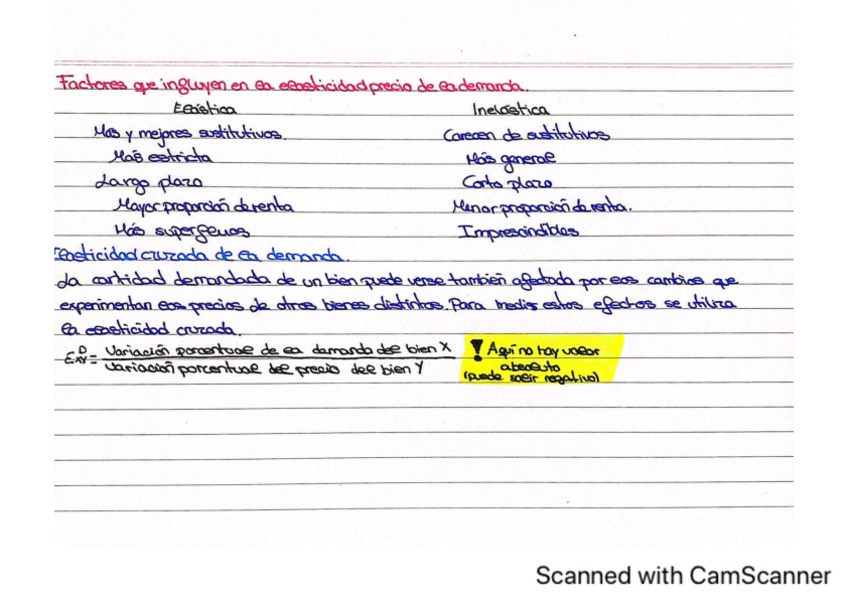 Factores que influyen en la elasticidad precio de la demanda.
Elástica Inelástica
Más y mejores sustitutivos. Carecen de sustitutivos
Más estricta Más general
Largo plazo Corto plazo
Mayor proporción de renta Menor proporción de renta.
Más superfluos Imprescindibles
Elasticidad cruzada de la demanda.
La cantidad demandada de un bien puede verse también afectada por los cambios que
experimentan los precios de otros bienes distintos. Para medir estos efectos se utiliza
la elasticidad cruzada.
E^D_XY = Variación porcentual de la demanda del bien X
Variación porcentual del precio del bien Y
! Aquí no hay valor
absoluto
(puede salir negativo)
Scanned with CamScanner